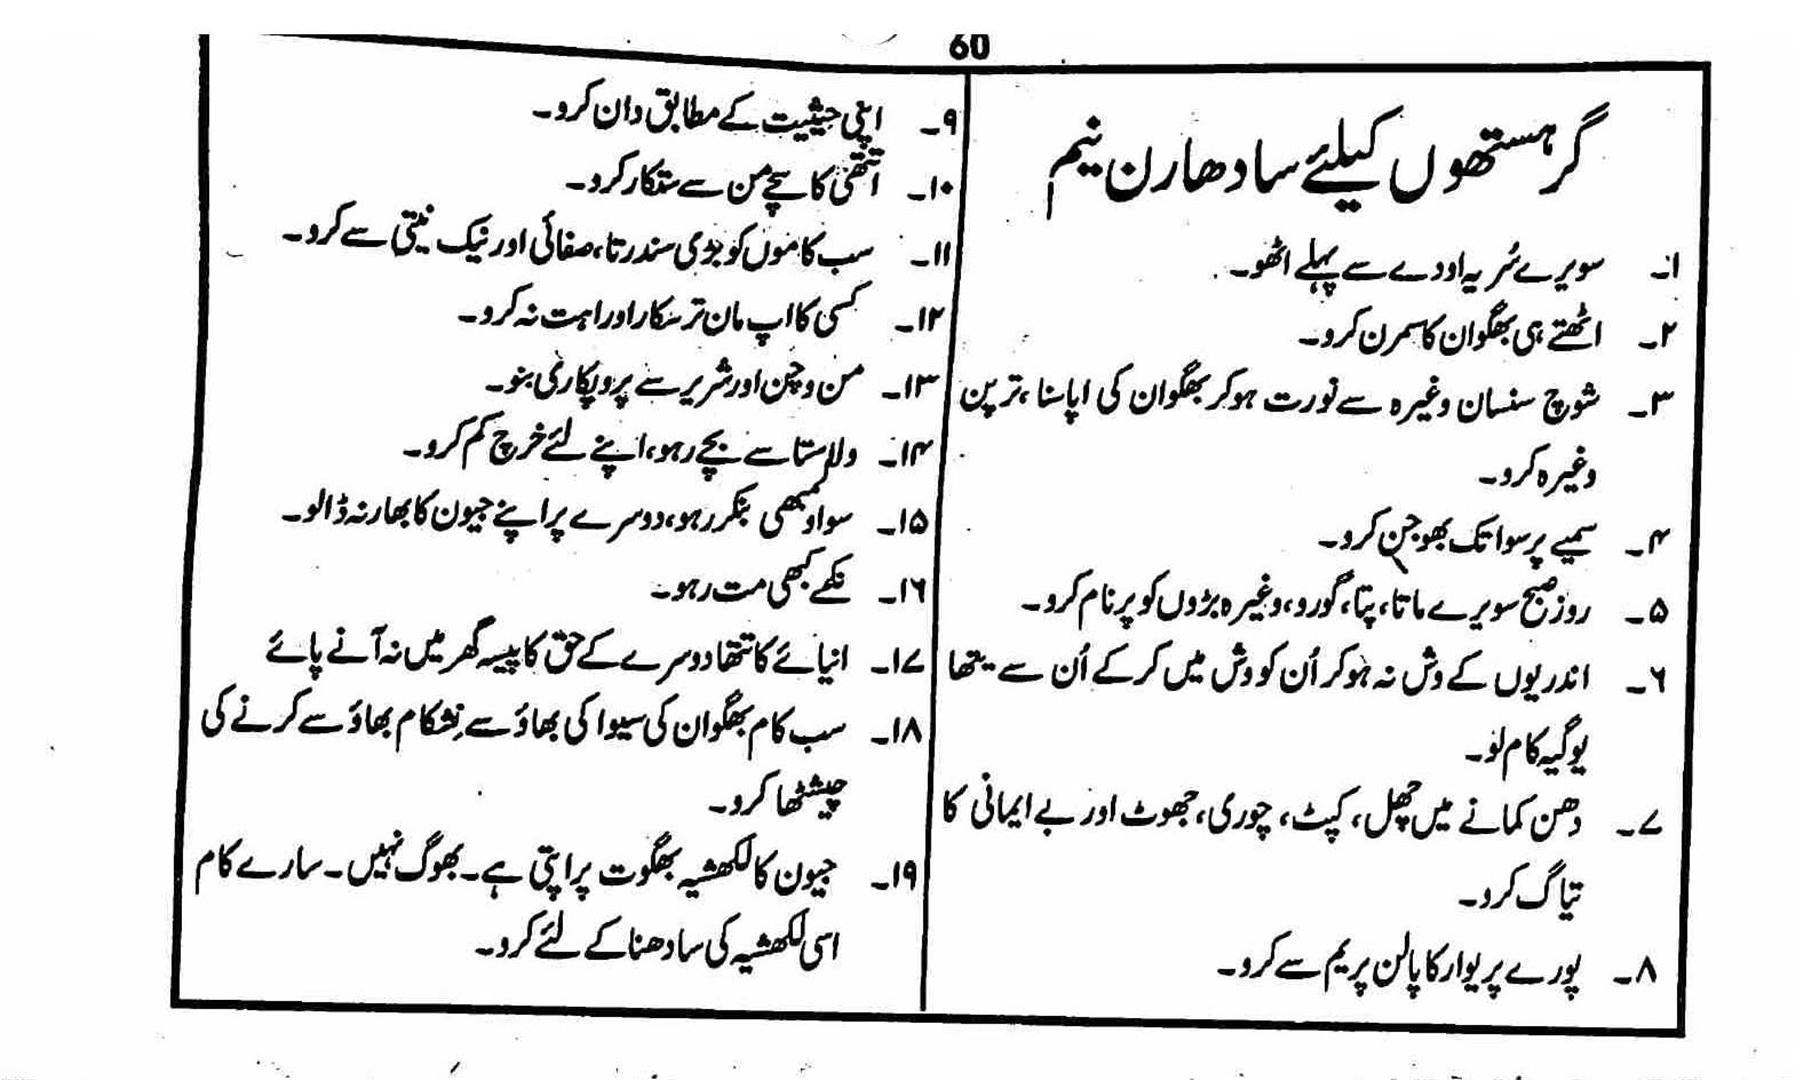 60
گرہستھوں کیلئے سادھارن نیم
۱۔ سویرے سُریہ اودے سے پہلے اٹھو۔
۲۔ اٹھتے ہی بھگوان کا سمرن کرو۔
۳۔ شوچ سنسان وغیرہ سے نورت ہوکر بھگوان کی اپاسنا، ترپن
وغیرہ کرو۔
۴۔ سمیے پر سواتک بھوجن کرو۔
۵۔ روز صبح سویرے ماتا، پتا، گورو، وغیرہ بڑوں کو پرنام کرو۔
۶۔ اندریوں کے وش نہ ہوکر اُن کو وش میں کرکے اُن سے یتھا
یوگیہ کام لو۔
۷۔ دھن کمانے میں چھل، کپٹ، چوری، جھوٹ اور بے ایمانی کا
تیاگ کرو۔
۸۔ پورے پریوار کا پالن پریم سے کرو۔
۹۔ اپنی حیثیت کے مطابق دان کرو۔
۱۰۔ اتتھی کا سچے من سے ستکار کرو۔
۱۱۔ سب کاموں کو بڑی سندرتا، صفائی اور نیک نیتی سے کرو۔
۱۲۔ کسی کا اپ مان ترسکار اور اہت نہ کرو۔
۱۳۔ من وچن اور شریر سے پروپکاری بنو۔
۱۴۔ ولاستا سے بچے رہو، اپنے لئے خرچ کم کرو۔
۱۵۔ سواولمبھی بنکر رہو، دوسرے پر اپنے جیون کا بھار نہ ڈالو۔
۱۶۔ نکمے کبھی مت رہو۔
۱۷۔ انیائے کا تتھا دوسرے کے حق کا پیسہ گھر میں نہ آنے پائے
۱۸۔ سب کام بھگوان کی سیوا کی بھاؤ سے نِشکام بھاؤ سے کرنے کی
چیشٹھا کرو۔
۱۹۔ جیون کا لکھشیہ بھگوت پراپتی ہے۔ بھوگ نہیں۔ سارے کام
اسی لکھشیہ کی سادھنا کے لئے کرو۔